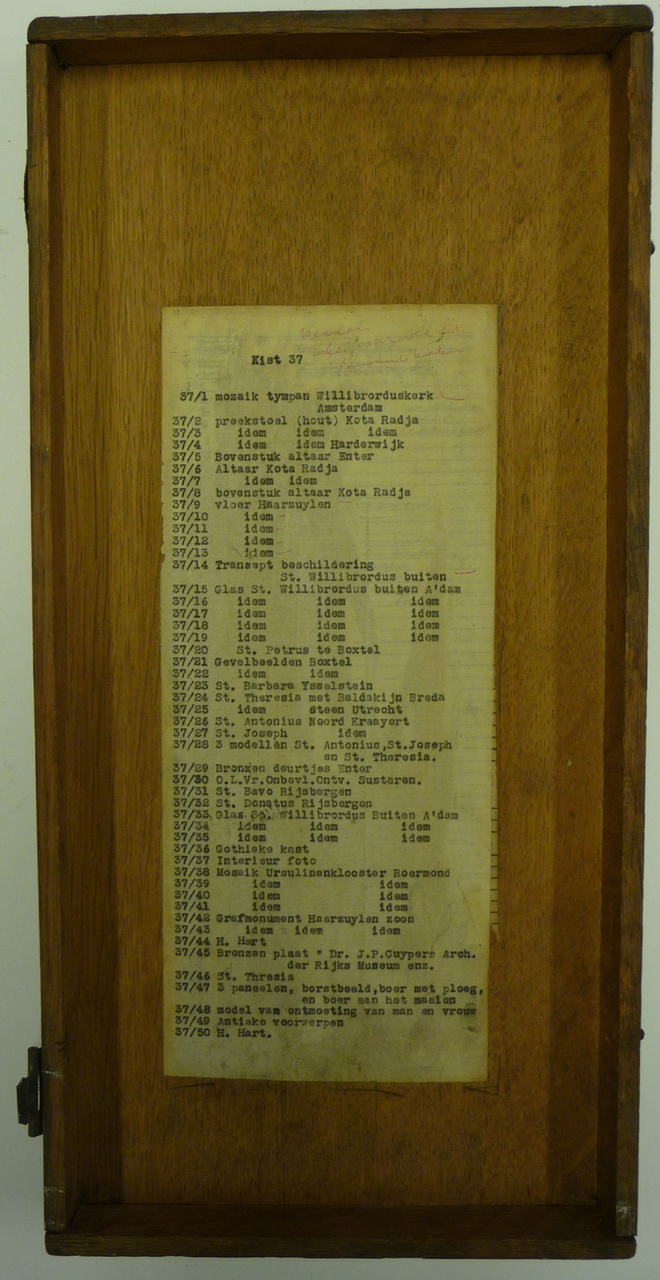 Kist 37
37/1 mozaik tympan Willibrorduskerk
Amsterdam
37/2 preekstoel (hout) Kota Radja
37/3 idem idem idem
37/4 idem idem Harderwijk
37/5 Bovenstuk altaar Enter
37/6 Altaar Kota Radja
37/7 idem idem
37/8 bovenstuk altaar Kota Radja
37/9 vloer Haarzuylen
37/10 idem
37/11 idem
37/12 idem
37/13 idem
37/14 Transept beschildering
St. Willibrordus buiten
37/15 Glas St. Willibrordus buiten A'dam
37/16 idem idem idem
37/17 idem idem idem
37/18 idem idem idem
37/19 idem idem idem
37/20 St. Petrus te Boxtel
37/21 Gevelbeelden Boxtel
37/22 idem idem
37/23 St. Barbara Ysselstein
37/24 St. Theresia met Baldakijn Breda
37/25 idem steen Utrecht
37/26 St. Antonius Noord Kraayert
37/27 St. Joseph idem
37/28 3 modellen St. Antonius,St.Joseph
en St. Theresia.
37/29 Bronzen deurtjes Enter
37/30 O.L.Vr.Onbevl.Ontv. Susteren.
37/31 St. Bavo Rijsbergen
37/32 St. Donatus Rijsbergen
37/33 Glas St. Willibrordus Buiten A'dam
37/34 idem idem idem
37/35 idem idem idem
37/36 Gothieke kast
37/37 Interieur foto
37/38 Mosaik Ursulinenklooster Roermond
37/39 idem idem
37/40 idem idem
37/41 idem idem
37/42 Grafmonument Haarzuylen zoon
37/43 idem idem idem
37/44 H. Hart
37/45 Bronzen plaat " Dr. J.P.Cuypers Arch.
der Rijks Museum enz.
37/46 St. Thresia
37/47 3 paneelen, borstbeeld,boer met ploeg,
en boer aan het maaien
37/48 model van ontmoeting van man en vrouw
37/49 Antieke voorwerpen
37/50 H. Hart.